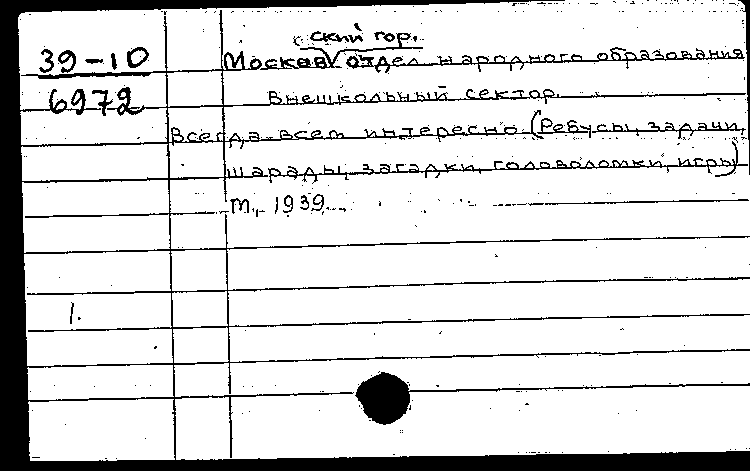 39-10
6972
ский гор.
Москов отдел народного образования
Внешкольный сектор.
Всегда всем интересно. (Ребусы, задачи,
шарады, загадки, головоломки, игры)
М., 1939.
1.